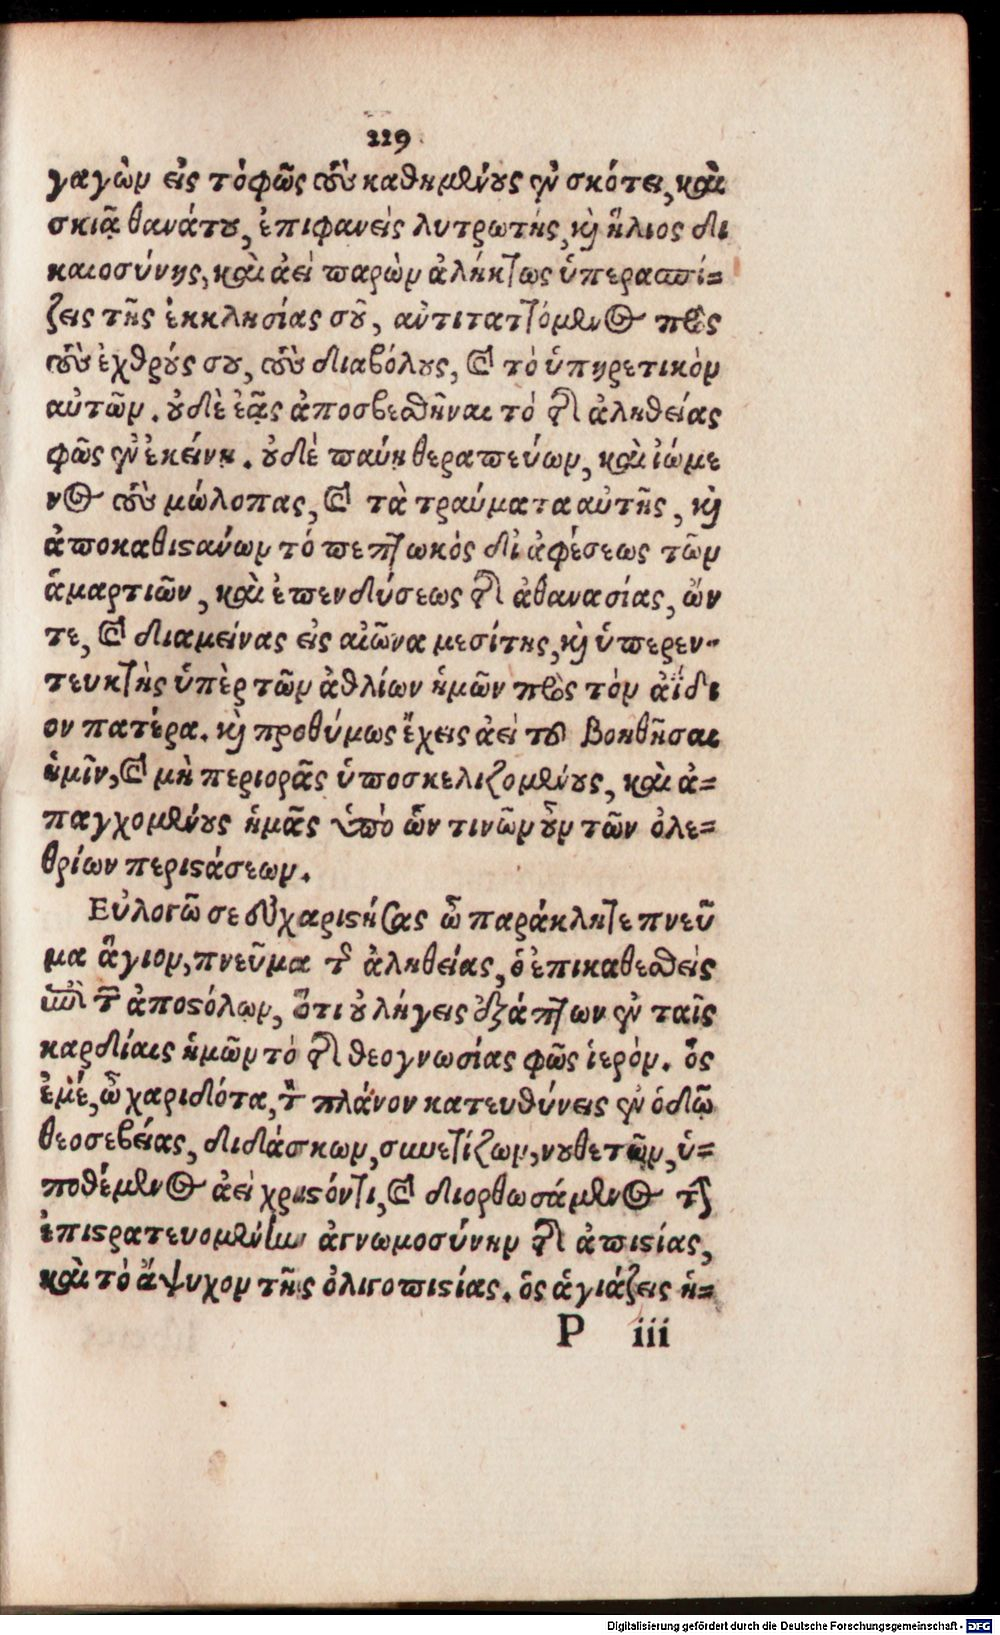 229
γαγὼν εἰς τὸ φῶς τοὺς καθημένους ἐν σκότει, καὶ
σκιᾷ θανάτου, ἐπιφανεὶς λυτρωτὴς, καὶ ἥλιος δι
καιοσύνης, καὶ ἀεὶ παρὼν ἀλήκτως ὑπερασπί=
ζεις τῆς ἐκκλησίας σοῦ, ἀντιτατόμενος πρὸς
τοὺς ἐχθροὺς σου, τοὺς διαβόλους, καὶ τὸ ὑπηρετικὸν
αὐτῶν. οὐδὲ ἐᾷς ἀποσβεσθῆναι τὸ τῆς ἀληθείας
φῶς ἐν ἐκείνῃ. οὐδὲ παύῃ θεραπεύων, καὶ ἰώμε
νος τοὺς μώλοπας, καὶ τὰ τραύματα αὐτῆς, καὶ
ἀποκαθιστανύων τὸ πεπτωκὸς δι ἀφέσεως τῶν
ἁμαρτιῶν, καὶ ἐπενδύσεως τῆς ἀθανασίας, ὤν
τε, καὶ διαμείνας εἰς αἰῶνα μεσίτης, καὶ ὑπερεν-
τευκτὴς ὑπὲρ τῶν ἀθλίων ἡμῶν πρὸς τὸν ἀΐδι
ον πατέρα. καὶ προθύμως ἔχεις ἀεὶ τοῦ βοηθῆσαι
ἡμῖν, καὶ μὴ περιορᾶς ὑποσκελιζομένους, καὶ ἀ=
παγχομένους ἡμᾶς ὑπὸ ὧν τινῶν οὖν τῶν ὀλε=
θρίων περιστάσεων.
Εὐλογῶ σε εὐχαριστήσας ὦ παράκλητε πνεῦ
μα ἅγιον, πνεῦμα τῆς ἀληθείας, ὁ ἐπικαθεσθεὶς
ἐπὶ τῶν ἀποστόλων, ὅτι οὐ λήγεις ἐξάπτων ἐν ταῖς
καρδίαις ἡμῶν τὸ τῆς θεογνωσίας φῶς ἱερὸν. ὃς
ἐμέ, ὦ χαριδότα, τὸν πλάνον κατευθύνεις ἐν ὁδῷ
θεοσεβείας, διδάσκων, συνετίζων, νουθετῶν, ὑ=
ποθέμενος ἀεὶ χρεστόντι, καὶ διορθωσάμενος τὴν
ἐπιστρατευομένην ἀγνωμοσύνην τῆς ἀπιστίας,
καὶ τὸ ἄψυχον τῆς ὀλιγοπιστίας. ὃς ἁγιάζεις ἡ=
P iii
Digitalisierung gefördert durch die Deutsche Forschungsgemeinschaft - DFG